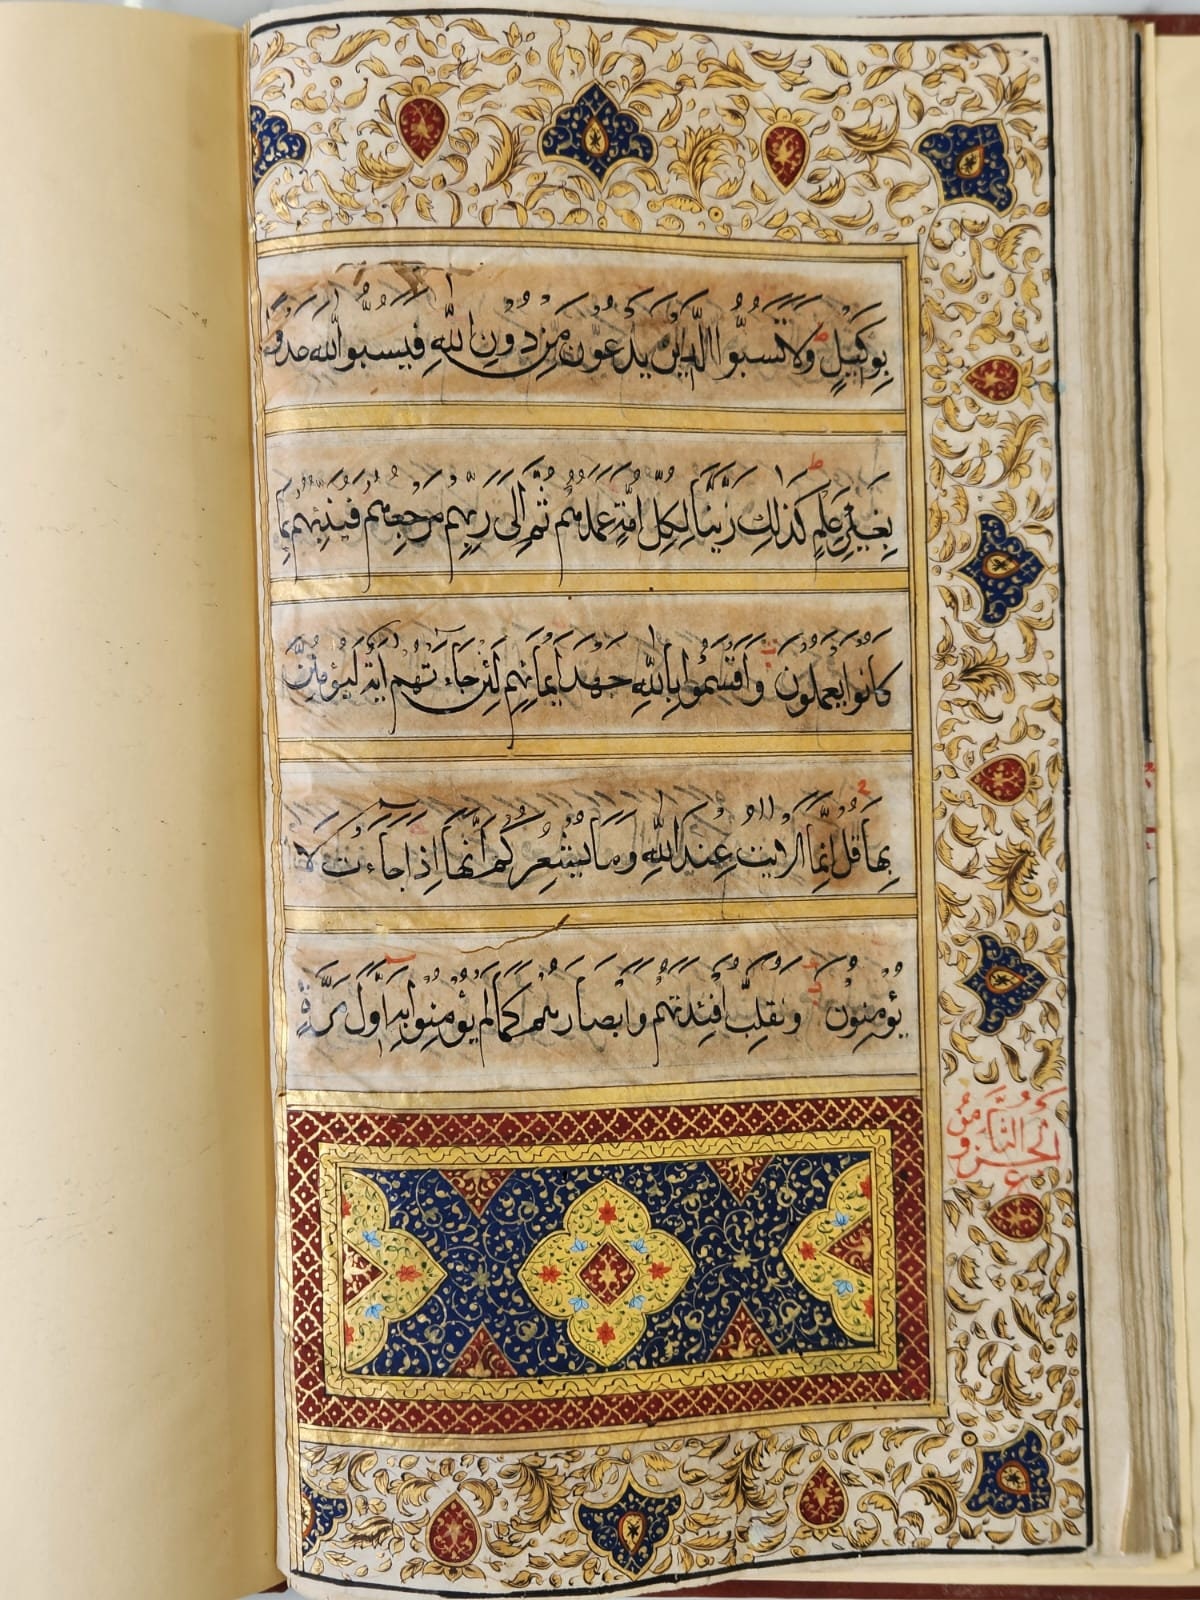 بِوَكِيلٍ ط وَلَا تَسُبُّوا الَّذِينَ يَدْعُونَ مِنْ دُونِ اللّٰهِ فَيَسُبُّوا اللّٰهَ عَدْوًا
بِغَيْرِ عِلْمٍ ط كَذٰلِكَ زَيَّنَّا لِكُلِّ اُمَّةٍ عَمَلَهُمْ ثُمَّ اِلٰى رَبِّهِمْ مَرْجِعُهُمْ فَيُنَبِّئُهُمْ بِمَا
كَانُوا يَعْمَلُونَ وَاَقْسَمُوا بِاللّٰهِ جَهْدَ اَيْمَانِهِمْ لَئِنْ جَاءَتْهُمْ اٰيَةٌ لَيُؤْمِنُنَّ
بِهَا قُلْ اِنَّمَا الْاٰيٰتُ عِنْدَ اللّٰهِ وَمَا يُشْعِرُكُمْ اَنَّهَا اِذَا جَاءَتْ لَا
يُؤْمِنُونَ وَنُقَلِّبُ اَفْئِدَتَهُمْ وَاَبْصَارَهُمْ كَمَا لَمْ يُؤْمِنُوا بِهِ اَوَّلَ مَرَّةٍ
من
الجزو